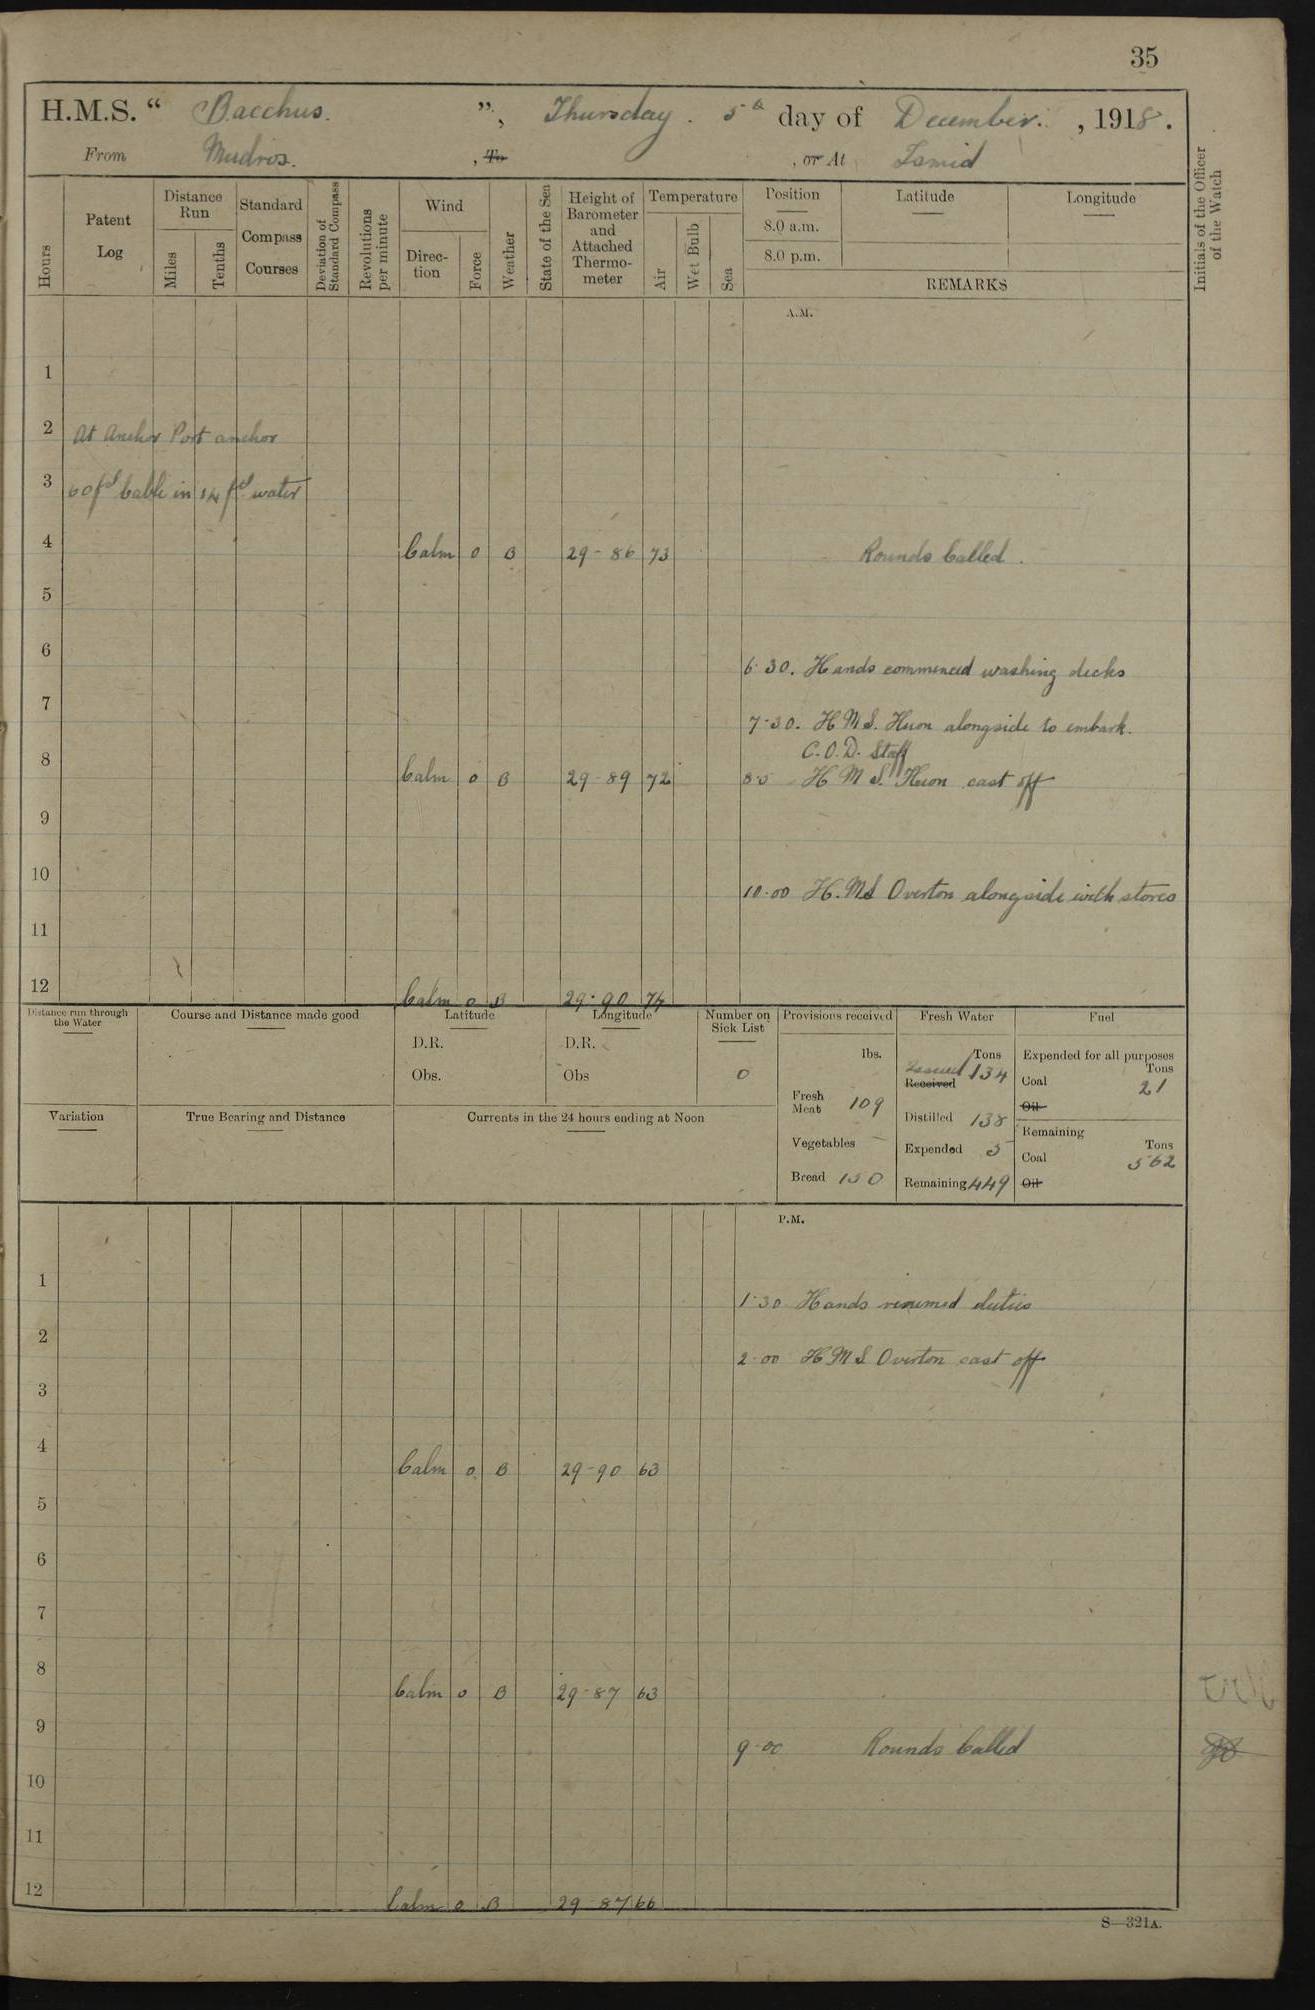 35
H.M.S. “ Bacchus. ”, Thursday. 5th day of December. , 1918.
From Mudros. , To , or At Ismid
Hours
Patent Log
Distance Run
Miles
Tenths
Standard Compass Courses
Deviation of Standard Compass
Revolutions per minute
Wind
Direction
Force
Weather
State of the Sea
Height of Barometer and Attached Thermometer
Temperature
Air
Wet Bulb
Sea
Position
8.0 a.m.
8.0 p.m.
Latitude
Longitude
REMARKS
Initials of the Officer of the Watch
A.M.
1
2 At Anchor Port anchor
3 60 fms Cable in 14 fms water
4 Calm 0 B 29-86 73 Rounds Called.
5
6 6.30. Hands commenced washing decks
7 7-30. H.M.S. Huon alongside to embark.
C.O.D. Staff
8 Calm 0 B 29-89 72 8.0 H M S. Huon cast off
9
10 10.00 H.M.S Overton alongside with stores
11
12 Calm 0 B 29.90 74
Distance run through the Water
Course and Distance made good
Latitude
D.R.
Obs.
Longitude
D.R.
Obs
Number on Sick List
0
Provisions received
lbs.
Fresh Meat 109
Vegetables -
Bread 150
Fresh Water
Tons
Issued Received 134
Distilled 138
Expended 5
Remaining 449
Fuel
Expended for all purposes
Tons
Coal 21
Oil
Remaining
Tons
Coal 562
Oil
Variation
True Bearing and Distance
Currents in the 24 hours ending at Noon
P.M.
1 1.30 Hands resumed duties
2 2.00 H M S Overton cast off
3
4 Calm 0 B 29-90 63
5
6
7
8 Calm 0 B 29-87 63
9 9.00 Rounds Called
10
11
12 Calm 0 B 29-87 66
S—321A.